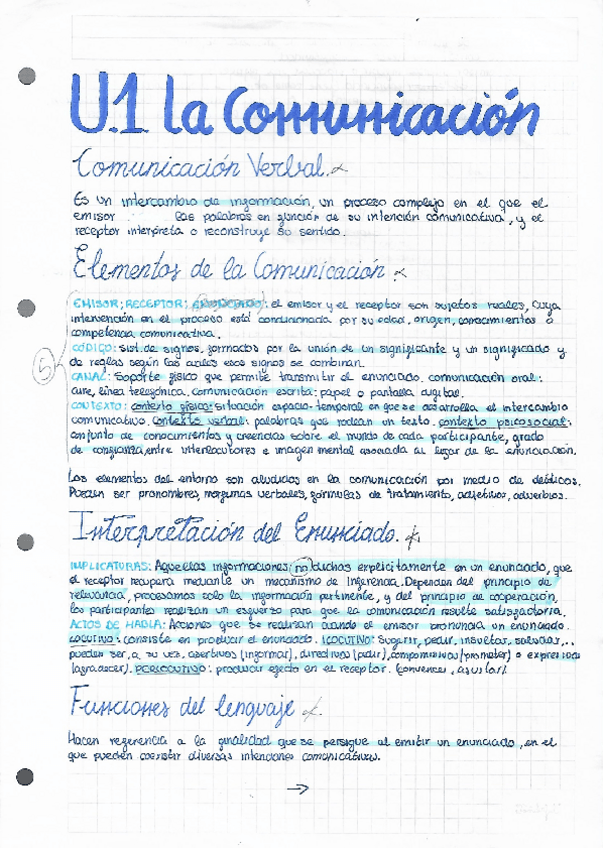 U.1 La Comunicación
Comunicación Verbal.
Es un intercambio de información, un proceso complejo en el que el
emisor las palabras en función de su intención comunicativa, y el
receptor interpreta o reconstruye su sentido.
Elementos de la Comunicación
EMISOR; RECEPTOR; ENUNCIADO: el emisor y el receptor son sujetos reales, cuya
intervención en el proceso está condicionada por su edad, origen, conocimientos o
competencia comunicativa.
5
CÓDIGO: sist. de signos, formados por la unión de un significante y un significado y
de reglas según las cuales esos signos se combinan.
CANAL: Soporte físico que permite transmitir el enunciado. comunicación oral:
aire, línea telefónica. comunicación escrita: papel o pantalla digital.
CONTEXTO: contexto físico: situación espacio-temporal en que se desarrolla el intercambio
comunicativo. contexto verbal: palabras que rodean un texto. contexto psicosocial:
conjunto de conocimientos y creencias sobre el mundo de cada participante, grado
de confianza entre interlocutores e imagen mental asociada al lugar de la enunciación.
Los elementos del entorno son aludidos en la comunicación por medio de deícticos.
Pueden ser pronombres, morfemas verbales, fórmulas de tratamiento, adjetivos, adverbios.
Interpretación del Enunciado.
IMPLICATURAS: Aquellas informaciones no dichas explícitamente en un enunciado, que
el receptor recupera mediante un mecanismo de inferencia. Dependen del principio de
relevancia, procesamos solo la información pertinente, y del principio de cooperación,
los participantes realizan un esfuerzo para que la comunicación resulte satisfactoria.
ACTOS DE HABLA: Acciones que se realizan cuando el emisor pronuncia un enunciado.
LOCUTIVO: consiste en producir el enunciado. ILOCUTIVO: Sugerir, pedir, insultar, saludar,..
pueden ser, a su vez, asertivos (informar), directivos (pedir), compromisivos (prometer) o expresivos
(agradecer). PERLOCUTIVO: producir efecto en el receptor. (convencer, asustar).
Funciones del lenguaje
Hacen referencia a la finalidad que se persigue al emitir un enunciado, en el
que pueden coexistir diversas intenciones comunicativas.
→